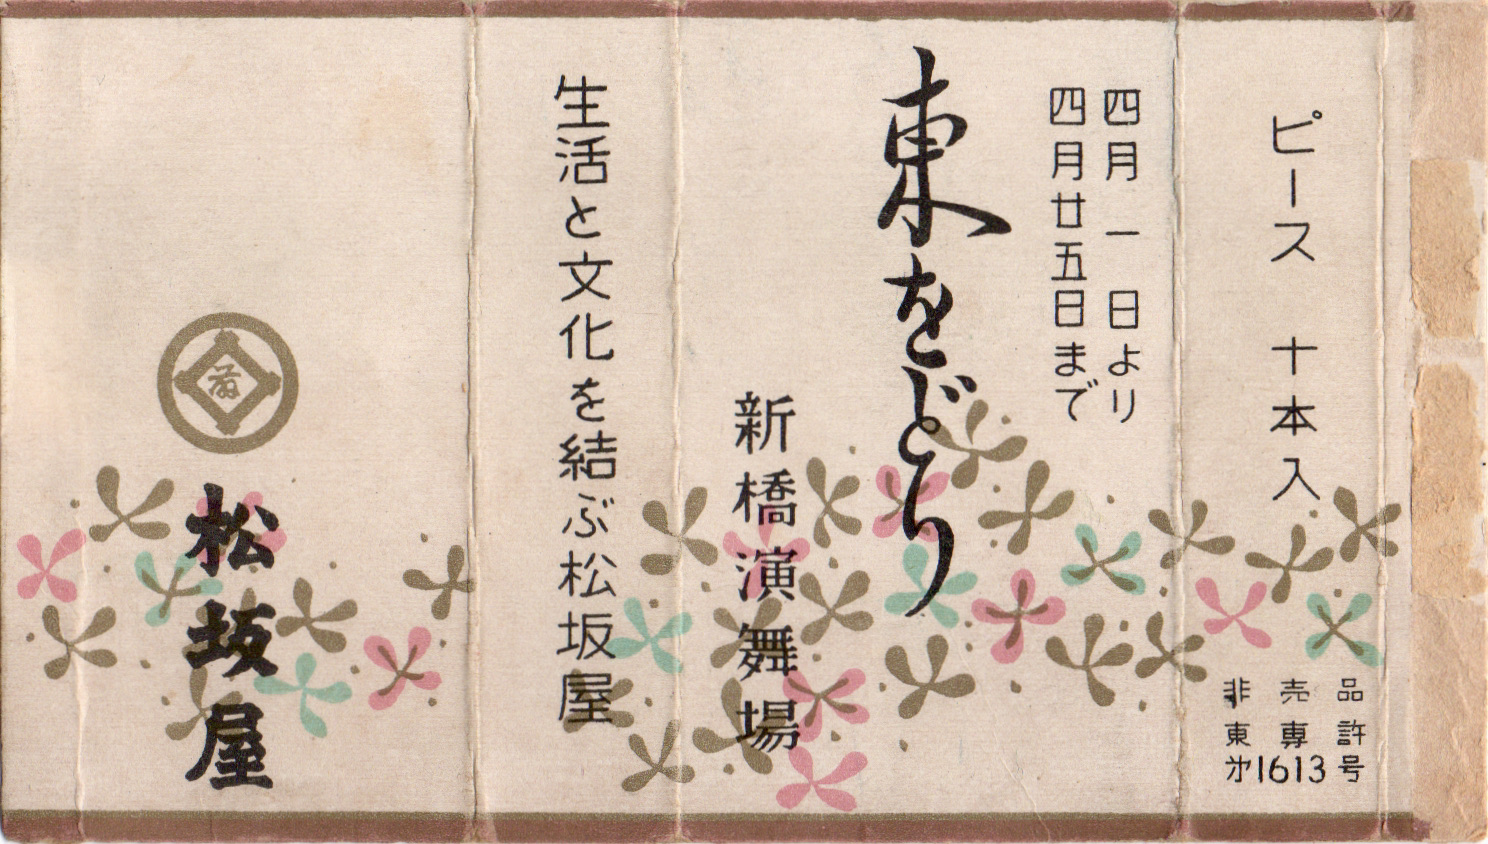 ピース 十本入
非売品
東専許
才1613号
四月一日より
四月廿五日まで
東をどり
新橋演舞場
生活と文化を結ぶ松坂屋
松坂屋